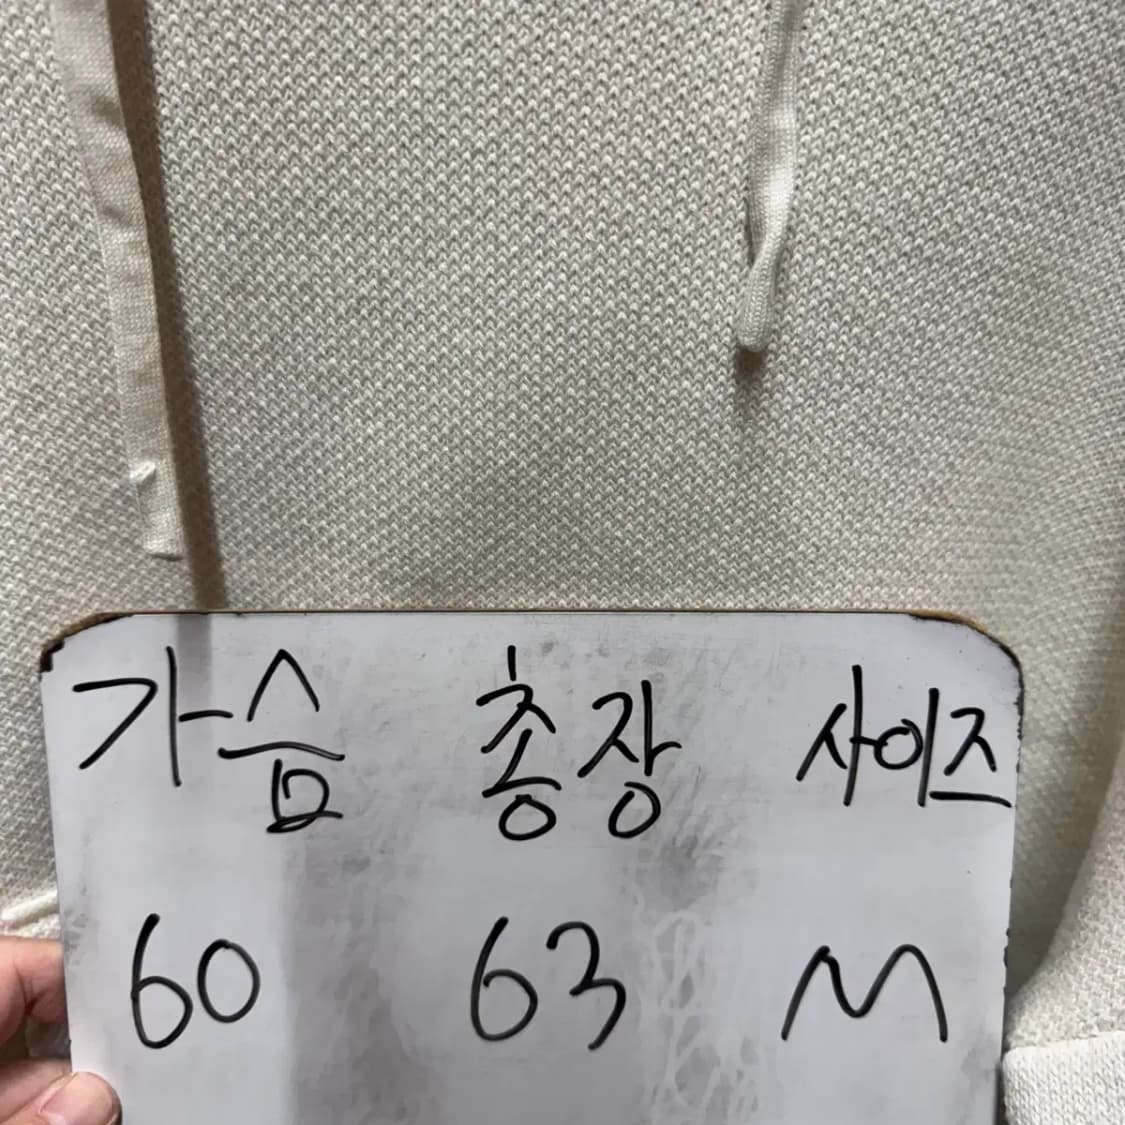 가슴 총장 사이즈
60 63 M